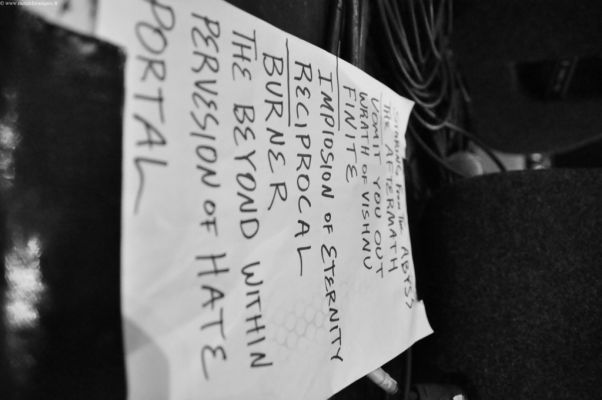 STARING FROM THE ABYSS
THE AFTERMATH
VOMIT YOU OUT
WRATH OF VISHNU
FINITE
IMPLOSION OF ETERNITY
RECIPROCAL
BURNER
THE BEYOND WITHIN
PERVESION OF HATE
PORTAL